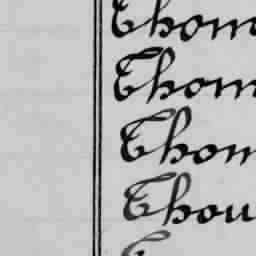 Thom
Thom
Thom
Thou